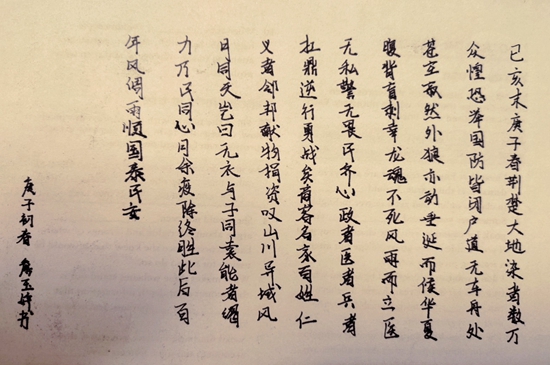 己亥末庚子春荆楚大地染者数万
众惶恐举国防皆闭户道无车舟处
苍立孤然外猿亦动垂诞而候华夏
腹背育刺幸龙魂不死风雨而立医
无私警无畏民齐心政者医者兵者
扛鼎逆行勇战矣商客名家百姓仁
义者邻邦献物捐资叹山川异域风
月同天岂曰无衣与子同裳能者竭
力乃民同心月余疫除终胜此后百
年风调雨顺国泰民安
庚子初春 书